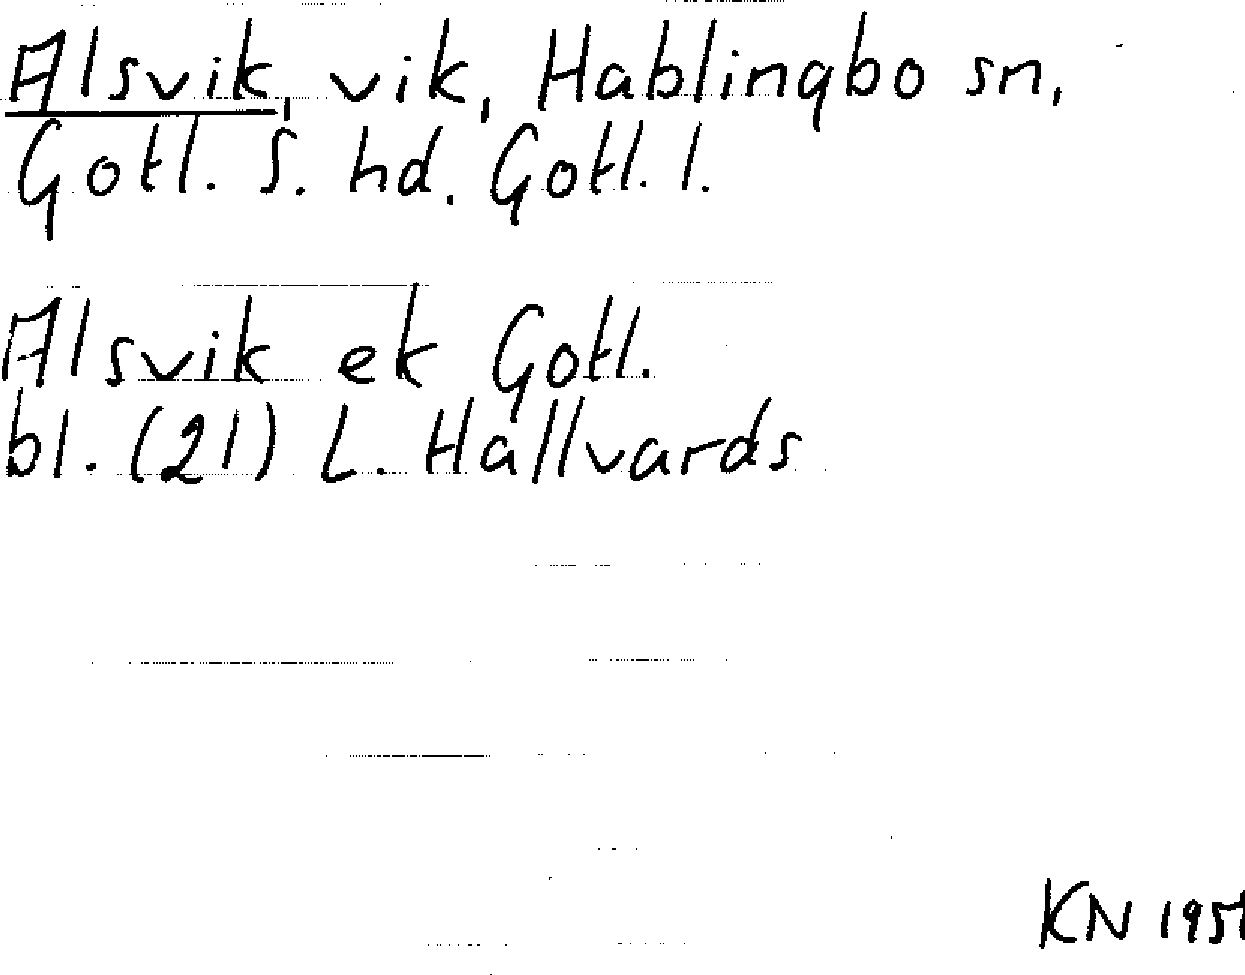 Alsvik, vik, Hablingbo sn,
Gotl. S. hd. Gotl. l.
Alsvik ek Gotl.
bl. (21) L. Hallvards
KN 1951